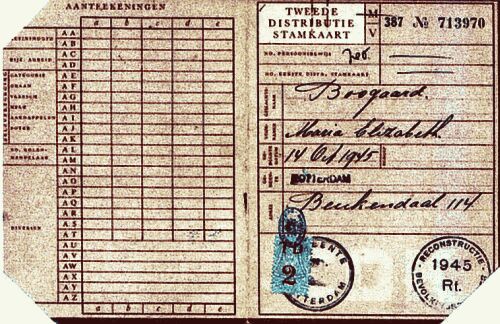 AANTEEKENINGEN
a b c d e
AA
AB
BIJZ. ARBEID AC
AD
CATEGORIE AE
GRAAN AF
VLEESCH AG
MELK AH
AARDAPPELEN AI
POTER AJ
AK
AL
AM
AN
AO
AP
AQ
AR
AS
DIVERSEN AT
AU
AV
AW
AX
AY
AZ
a b c d e
TWEEDE
DISTRIBUTIE
STAMKAART
M
V
387 № 713970
NO. PERSOONSBEWIJS
NO. EERSTE DISTR. STAMKAART
Boogaard.
Maria Elizabeth.
14 Oct 1945
ROTTERDAM
Beukendaal 114
GEMEENTE
ROTTERDAM
RECONSTRUCTIE
1945
Rt.